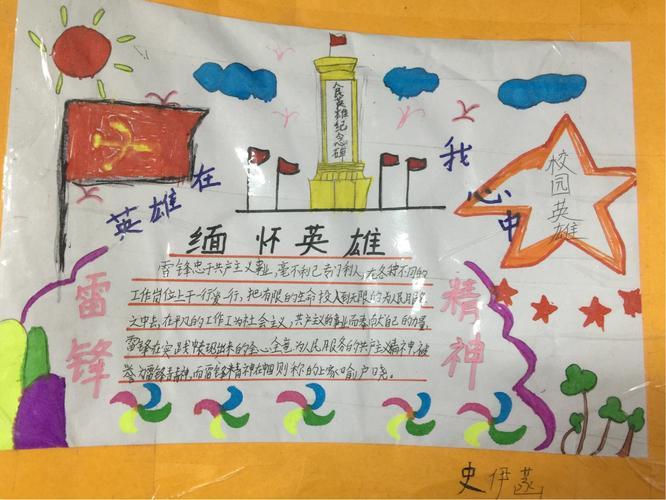 英雄在
我心中
民英雄纪念碑
校园英雄
缅怀英雄
雷锋
精神
雷锋忠于共产主义事业,毫不利己专门利人,在各种不同的
工作岗位上干一行爱一行,把有限的生命投入到无限的为人民服务
之中去,在平凡的工作上为社会主义,共产主义的事业而奉献自己的力量,
雷锋在实践体现出来的全心全意为人民服务的共产主义精神,被
誉为雷锋精神,而雷锋精神在中国则称的上家喻户晓。
史伊